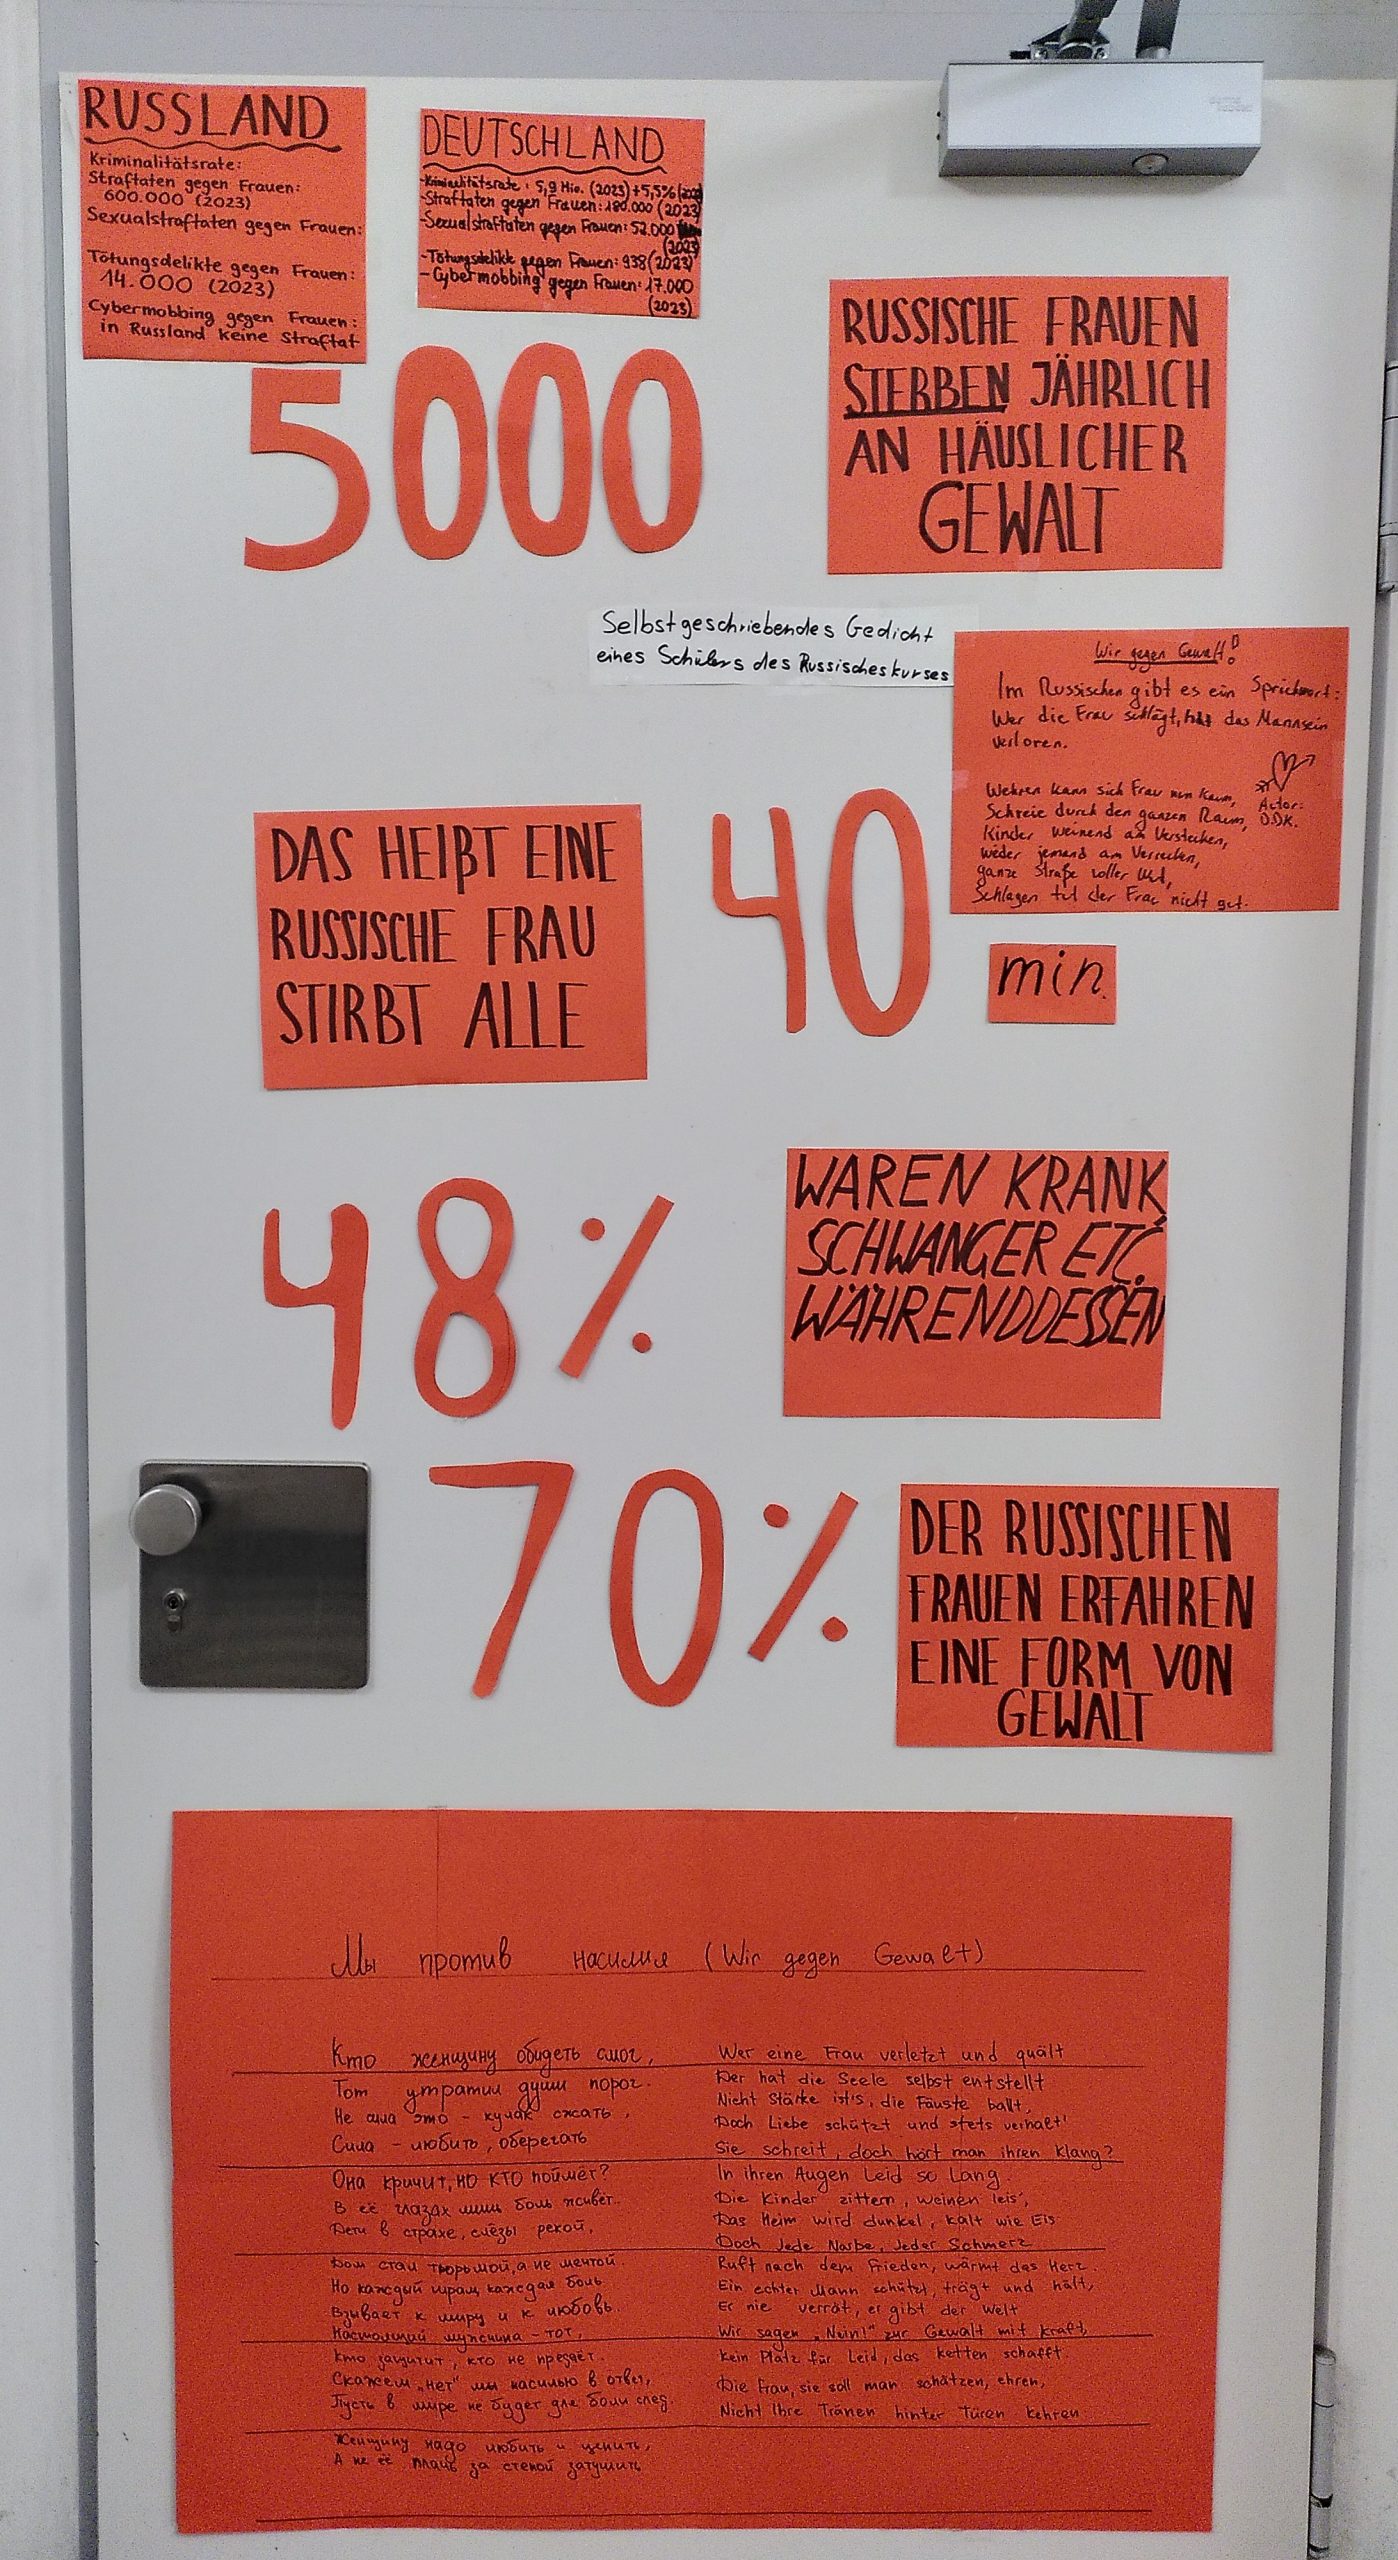 RUSSLAND
Kriminalitätsrate:
Straftaten gegen Frauen:
600.000 (2023)
Sexualstraftaten gegen Frauen:
Tötungsdelikte gegen Frauen:
14.000 (2023)
Cybermobbing gegen Frauen:
in Russland keine Straftat
DEUTSCHLAND
-Kriminalitätsrate: 5,9 Mio. (2023) +5,5% (2023)
-Straftaten gegen Frauen: 180.000 (2023)
-Sexualstraftaten gegen Frauen: 52.000
(2023)
-Tötungsdelikte gegen Frauen: 938 (2023)
-Cybermobbing gegen Frauen: 17.000
(2023)
5000
RUSSISCHE FRAUEN
STERBEN JÄHRLICH
AN HÄUSLICHER
GEWALT
Selbstgeschriebendes Gedicht
eines Schülers des Russischeskurses
Wir gegen Gewalt!
Im Russischen gibt es ein Sprichwort:
Wer die Frau schlägt, hat das Mannsein
verloren.
Wehren kann sich Frau nun kaum,
Schreie durch den ganzen Raum,
Kinder weinend am Verstecken,
weder jemand am Verrecken,
ganze Straße voller Wut,
Schlagen tut der Frau nicht gut.
Autor:
D.DK.
DAS HEIßT EINE
RUSSISCHE FRAU
STIRBT ALLE
40
min.
48%
WAREN KRANK,
SCHWANGER ETC.
WÄHRENDDESSEN
70%
DER RUSSISCHEN
FRAUEN ERFAHREN
EINE FORM VON
GEWALT
Мы против насилия (Wir gegen Gewalt)
Кто женщину обидеть смог,
Тот утратил души порог.
Не сила это - кулак сжать,
Сила - любить, оберегать
Она кричит, но кто поймёт?
В её глазах лишь боль живёт.
Дети в страхе, слёзы рекой,
Дом стал тюрьмой, а не мечтой.
Но каждый шрам, каждая боль
Взывает к миру и к любовь.
Настоящий мужчина - тот,
кто защитит, кто не предаёт.
Скажем „нет" мы насилью в ответ,
Пусть в мире не будет для боли след.
Женщину надо любить и ценить,
А не её плачь за стеной затушить
Wer eine Frau verletzt und quält
Der hat die Seele selbst entstellt
Nicht Stärke ist's, die Fäuste ballt,
Doch Liebe schützt und stets verhalt!
Sie schreit, doch hört man ihren Klang?
In ihren Augen Leid so Lang.
Die Kinder zittern, weinen leis',
Das Heim wird dunkel, kalt wie Eis.
Doch Jede Narbe, Jeder Schmerz
Ruft nach dem Frieden, wärmt das Herz.
Ein echter Mann schützt, trägt und hält,
Er nie verrät, er gibt der Welt
Wir sagen „Nein!" zur Gewalt mit Kraft,
Kein Platz für Leid, das Ketten schafft.
Die Frau, sie soll man schätzen, ehren,
Nicht Ihre Tränen hinter Türen kehren